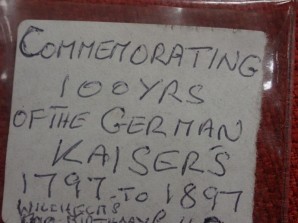 COMMEMORATING
100YRS
OF THE GERMAN
KAISER'S
1797-TO 1897
WILCHELM'S